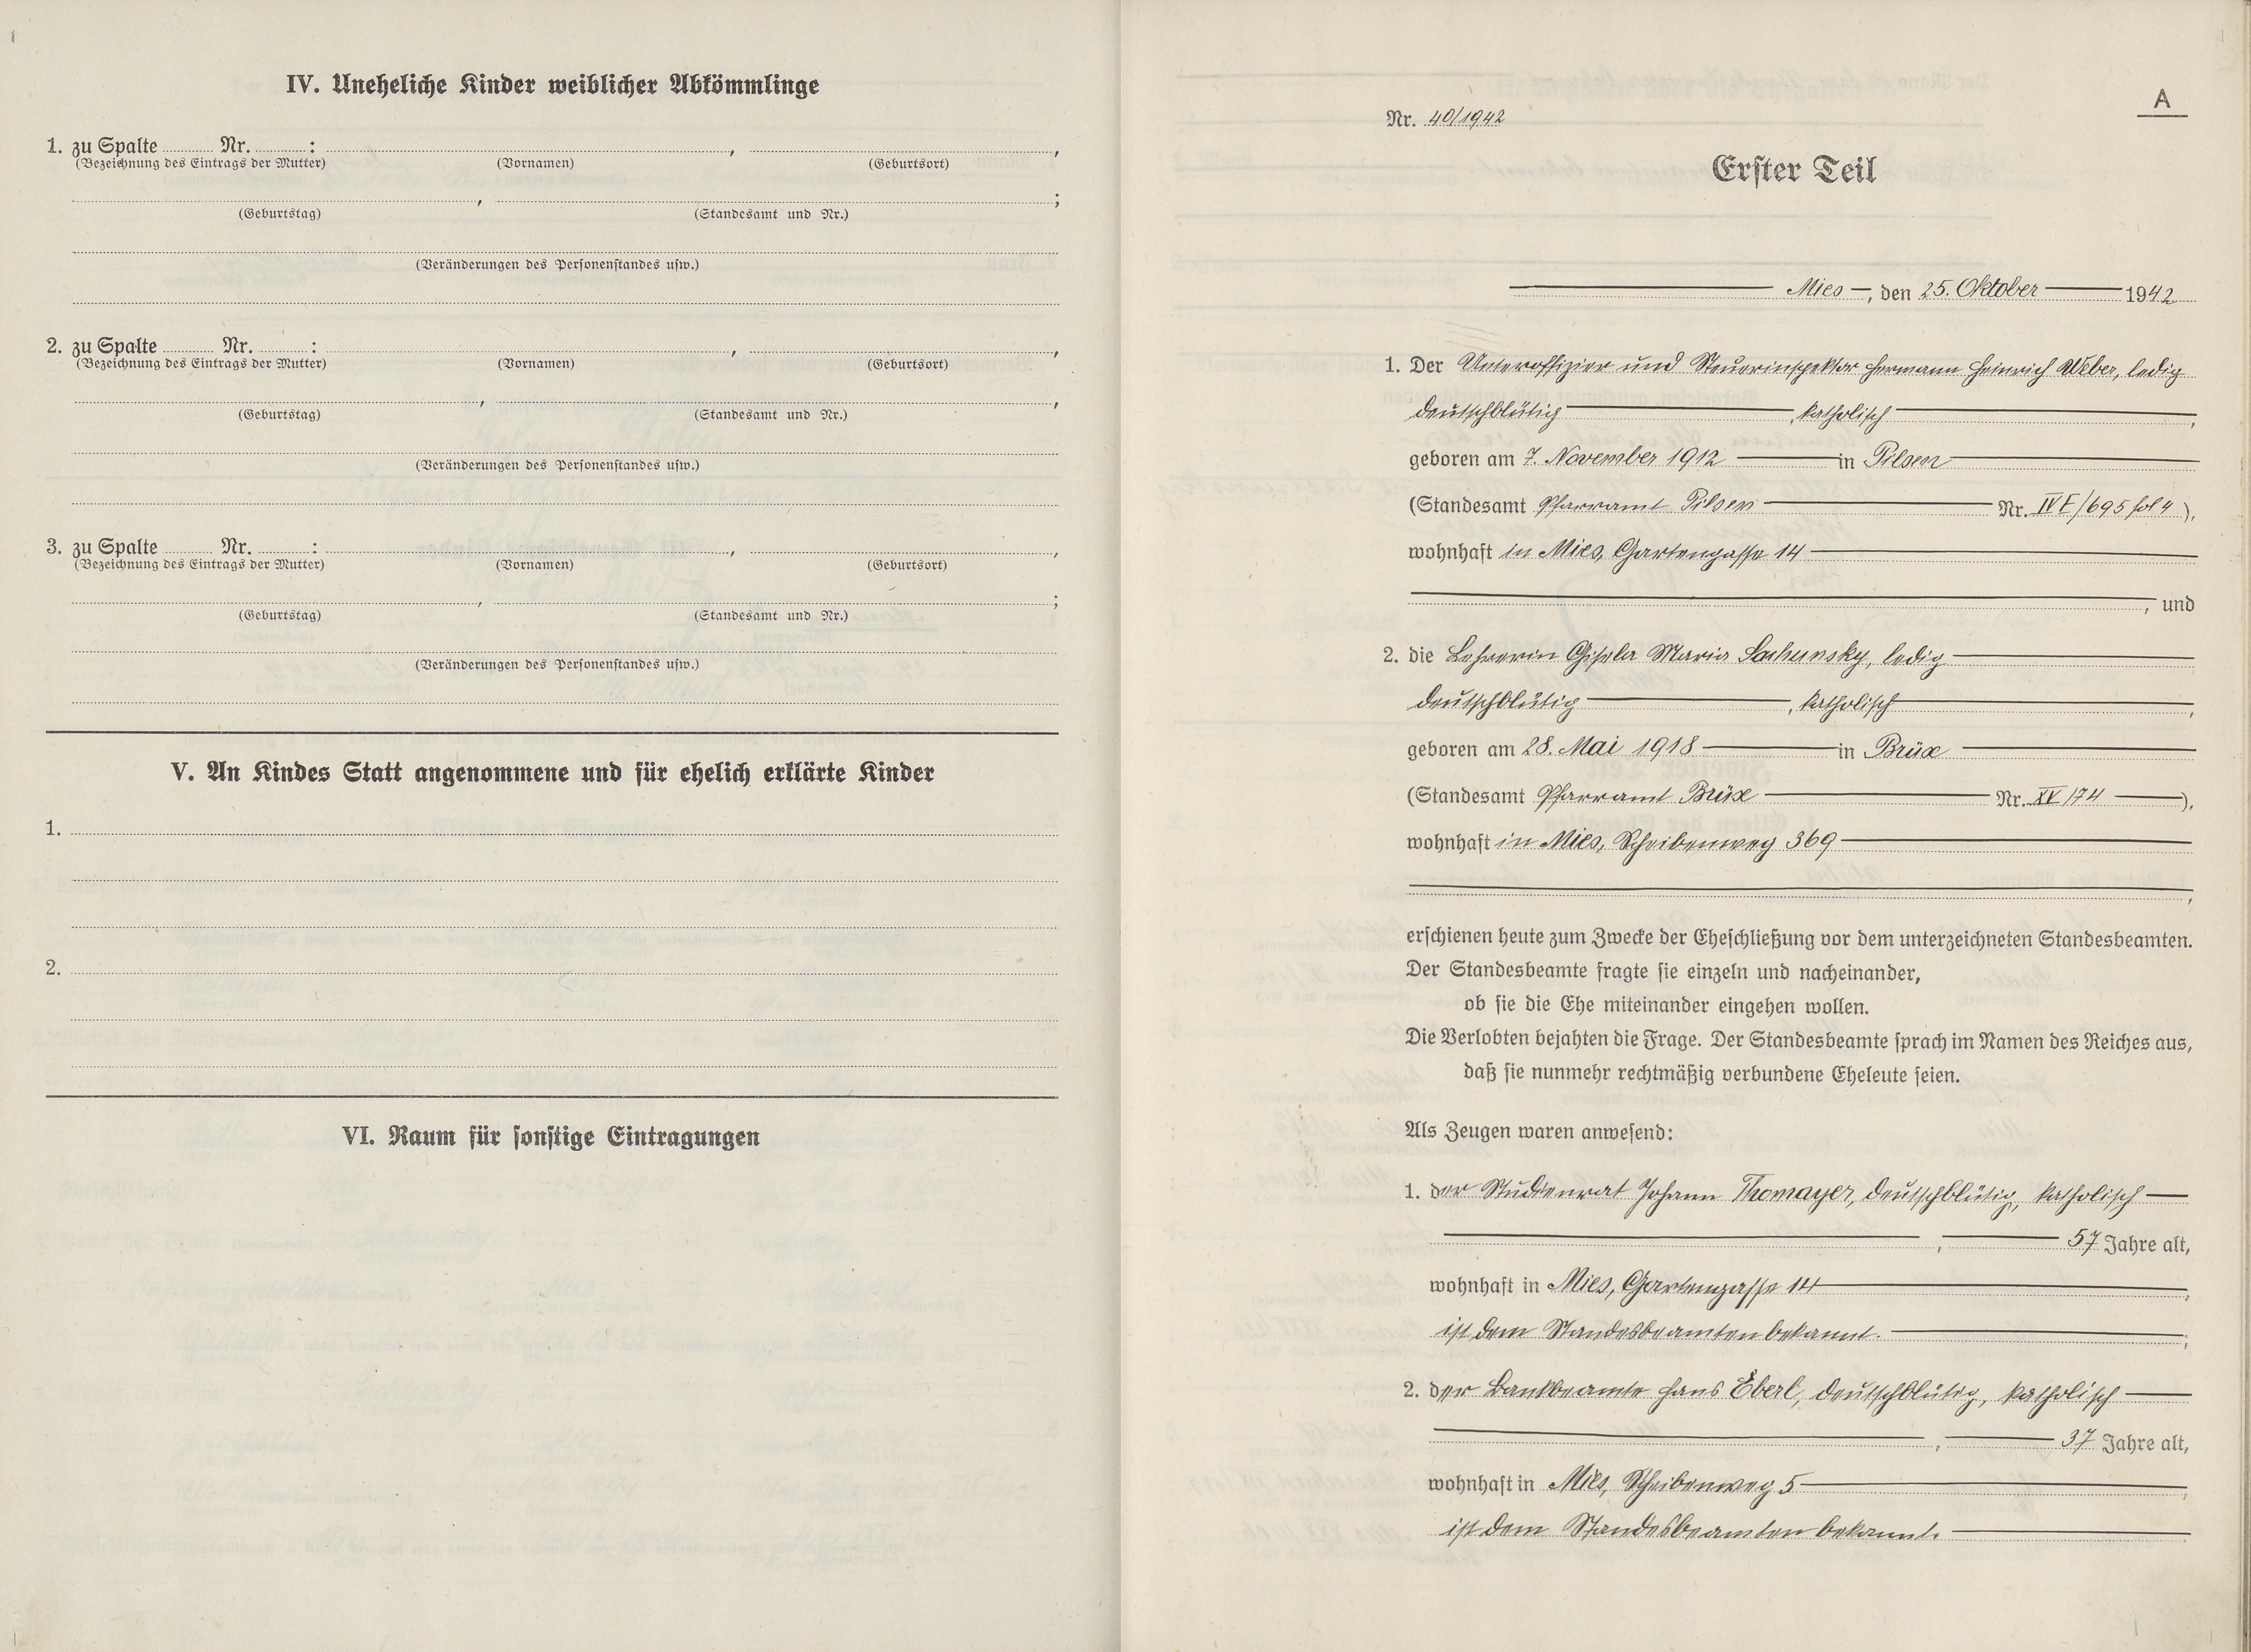 IV. Uneheliche Kinder weiblicher Abkömmlinge
1. zu Spalte Nr. : , ,
(Bezeichnung des Eintrags der Mutter) (Vornamen) (Geburtsort)
, ;
(Geburtstag) (Standesamt und Nr.)
(Veränderungen des Personenstandes usw.)
2. zu Spalte Nr. : , ,
(Bezeichnung des Eintrags der Mutter) (Vornamen) (Geburtsort)
, ,
(Geburtstag) (Standesamt und Nr.)
(Veränderungen des Personenstandes usw.)
3. zu Spalte Nr. : , ,
(Bezeichnung des Eintrags der Mutter) (Vornamen) (Geburtsort)
, ;
(Geburtstag) (Standesamt und Nr.)
(Veränderungen des Personenstandes usw.)
V. An Kindes Statt angenommene und für ehelich erklärte Kinder
1.
2.
VI. Raum für sonstige Eintragungen
A
Nr. 40/1942
Erster Teil
Mies, den 25. Oktober 1942
1. Der Unteroffizier und Steuerinspektor Hermann Heinrich Weber, ledig
deutschblütig, katholisch,
geboren am 7. November 1912 in Pilsen
(Standesamt Pfarramt Pilsen Nr. IV E/695 fol 4),
wohnhaft in Mies, Gartengasse 14
, und
2. die Lehrerin Gisela Maria Sachunsky, ledig
deutschblütig, katholisch,
geboren am 28. Mai 1918 in Brüx
(Standesamt Pfarramt Brüx Nr. XV/74),
wohnhaft in Mies, Scheibenweg 369
,
erschienen heute zum Zwecke der Eheschließung vor dem unterzeichneten Standesbeamten.
Der Standesbeamte fragte sie einzeln und nacheinander,
ob sie die Ehe miteinander eingehen wollen.
Die Verlobten bejahten die Frage. Der Standesbeamte sprach im Namen des Reiches aus,
daß sie nunmehr rechtmäßig verbundene Eheleute seien.
Als Zeugen waren anwesend:
1. der Studienrat Johann Thomayer, deutschblütig, katholisch
, 57 Jahre alt,
wohnhaft in Mies, Gartengasse 14,
ist dem Standesbeamten bekannt. ;
2. der Bankbeamte Hans Eberl, deutschblütig, katholisch
, 37 Jahre alt,
wohnhaft in Mies, Scheibenweg 5,
ist dem Standesbeamten bekannt.